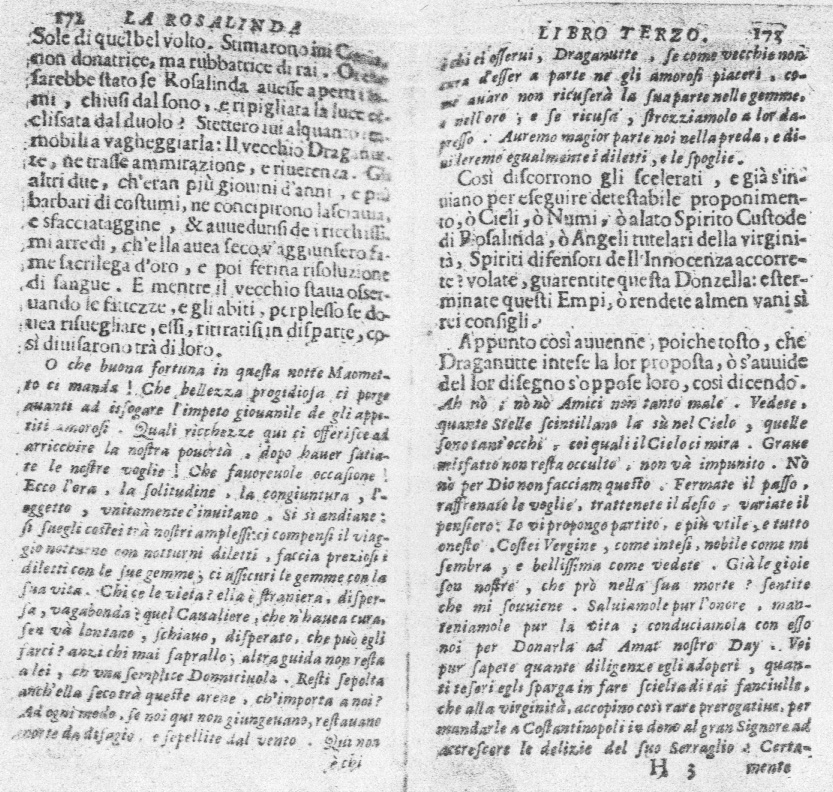 172 LA ROSALINDA
Sole di quel bel volto. Stimarono ini
non donatrice, ma rubbatrice di rai.
sarebbe stato se Rosalinda auesse aperti i
mi, chiusi dal sono, e ripigliata la luce ec-
clissata dal duolo? Stettero iui alquanto im-
mobili a vagheggiarla: Il vecchio Draganut-
te, ne trasse ammirazione, e riuerenza. Gli
altri due, ch'eran più giouini d'anni, e più
barbari di costumi, ne concipirono lasciauia,
e sfacciataggine, & auuedutisi de i ricchissi-
mi arredi, ch'ella auea seco v'aggiunsero fa-
me sacrilega d'oro, e poi ferina risoluzione
di sangue. E mentre il vecchio staua osser-
uando le fattezze, e gli abiti, perplesso se do-
uea risuegliare, essi, ritiratisi in disparte, co-
sì diuisarono trà di loro.
O che buona fortuna in questa notte Maomet-
to ci manda! Che bellezza progidiosa ci porge
auanti ad isfogare l'impeto giouanile de gli appe-
titi amorosi. Quali ricchezze qui ti offerisce ad
arricchire la nostra pouertà, dopo hauer satia-
te le nostre voglie! Che fauoreuole occasione!
Ecco l'ora, la solitudine, la congiuntura, l'-
oggetto, vnitamente c'inuitano. Si si andiane:
si suegli costei trà nostri amplessi: ci compensi il viag-
gio notturno con notturni diletti, faccia preziosi i
diletti con le sue gemme; ci assicuri le gemme con la
sua vita. Chi ce le vieta? ella è straniera, disper-
sa, vagabonda? quel Caualiere, che n'hauea cura,
sen và lontano, schiauo, disperato, che può egli
farci? anzi chi mai saprallo; altra guida non resta
a lei, ch'vna semplice Donniciuola. Resti sepolta
anch'ella seco trà queste arene, ch'importa a noi?
Ad ogni modo, se noi qui non giungeuano, restauano
morte da disagio, e sepellite dal vento. Qui non
è chi
LIBRO TERZO. 173
è chi ci osserui, Draganutte, se come vecchio non
cura d'esser a parte ne gli amorosi piaceri, co-
me auaro non ricuserà la sua parte nelle gemme,
e nell'oro; e se ricusa, strozziamolo a lor da-
presso. Auremo magior parte noi nella preda, e di-
uideremo egualmente i diletti, e le spoglie.
Così discorrono gli scelerati, e già s'in-
uiano per eseguire detestabile proponimen-
to, ò Cieli, ò Numi, ò alato Spirito Custode
di Rosalinda, ò Angeli tutelari della virgini-
tà, Spiriti difensori dell'Innocenza accorre-
te? volate, guarentite questa Donzella: ester-
minate questi Empi, ò rendete almen vani sì
rei consigli.
Appunto così auuenne, poiche tosto, che
Draganutte intese la lor proposta, ò s'auuide
del lor disegno s'oppose loro, così dicendo.
Ah nò; nò nò Amici non tanto male. Vedete,
quante Stelle scintillano la sù nel Cielo, quelle
sono tant'occhi, coi quali il Cielo ci mira. Graue
misfatto non resta occulto, non và impunito. Nò
nò per Dio non facciam questo. Fermate il passo,
raffrenate le voglie, trattenete il desio, variate il
pensiero: Io vi propongo partito, e più vtile, e tutto
onesto. Costei Vergine, come intesi, nobile come mi
sembra, e bellissima come vedete. Già le gioie
son nostre, che prò nella sua morte? sentite
che mi souuiene. Saluiamole pur l'onore, man-
teniamole pur la vita; conduciamola con esso
noi per Donarla ad Amat nostro Day. Voi
pur sapete quante diligenze egli adoperi, quan-
ti tesori egli sparga in fare scielta di tai fanciulle,
che alla virginità, accopino così rare prerogatiue, per
mandarle a Costantinopoli in dono al gran Signore ad
accrescere le delizie del suo Serraglio? Certa-
H 3 mente